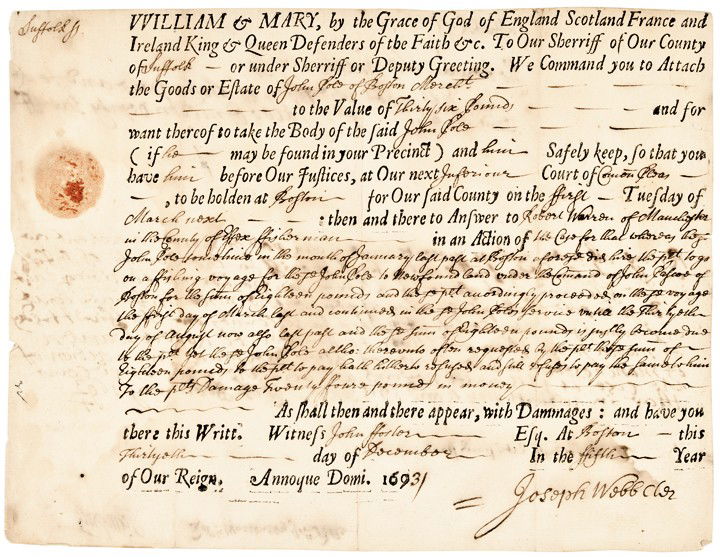 Suffolk ss
WILLIAM & MARY, by the Grace of God of England Scotland France and
Ireland King & Queen Defenders of the Faith &c. To Our Sherriff of Our County
of Suffolk — or under Sherriff or Deputy Greeting. We Command you to Attach
the Goods or Estate of John Cole of Boston Mercht.
to the Value of Thirty six Pounds — and for
want thereof to take the Body of the said John Cole
( if he — may be found in your Precinct ) and him Safely keep, so that you
have him before Our Justices, at Our next Inferiour Court of Comon Pleas
—, to be holden at Boston for Our said County on the ffirst — Tuesday of
March next — : then and there to Answer to Robert Warren of Manchester
in the County of Essex ffisherman — in an Action of the Case for that whereas the sd
John Cole sometime in the month of January last past at Boston aforesd did hire the pltt to go
on a fishing voyage for the sd John Cole to Newfoundland under the Comand of John
Boston for the sum of Eighteen pounds and the sd pltt accordingly proceeded on the sd voyage
the first day of March last and continued in the sd John Coles service untill the Thirtyeth
day of August now also last past and the sd sum of Eighteen pounds is justly become due
to the pltt yet the sd John Cole altho: thereunto often requested by the pltt the sd sum of
Eighteen pounds to the pltt to pay hath hitherto refused and still refuses to pay the same to him
To the pltts Damage Twenty foure pounds in money
As shall then and there appear, with Dammages : and have you
there this Writt. Witness John ffoster — Esq. At Boston — this
Thirtyeth — day of December — In the ffifth — Year
of Our Reign. Annoque Domi. 1693
Joseph Webb Cler